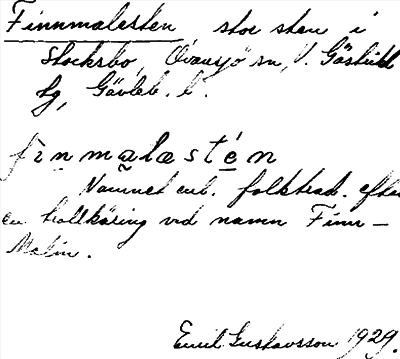 Finnmalesten stor sten i
Stocksbo, Ovansjö sn, V. Gästrikl
tg, Gävleb. l.
finmalæstén
Namnet enl. folktrad. efter
en trollkäring vid namn Finn-
Malin.
Emil Gustavsson 1929.